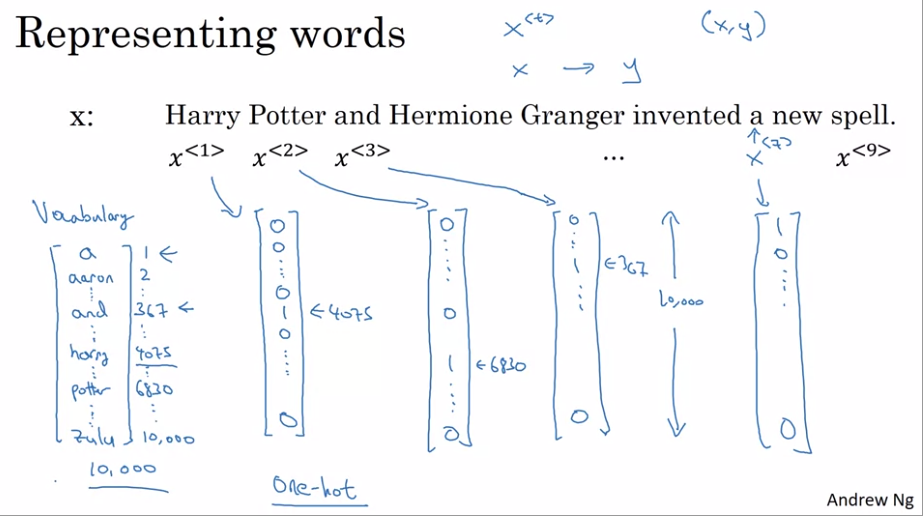 Representing words
x<t>
(x,y)
x → y
x: Harry Potter and Hermione Granger invented a new spell.
x<1> x<2> x<3> ... x<7> x<9>
Vocabulary
a 1 ←
aaron 2
and 367 ←
harry 4075
potter 6830
zulu 10,000
10,000
0
0
0
1 ← 4075
0
0
0
0
1 ← 6830
0
0
1 ← 367
0
10,000
1
0
0
One-hot
Andrew Ng